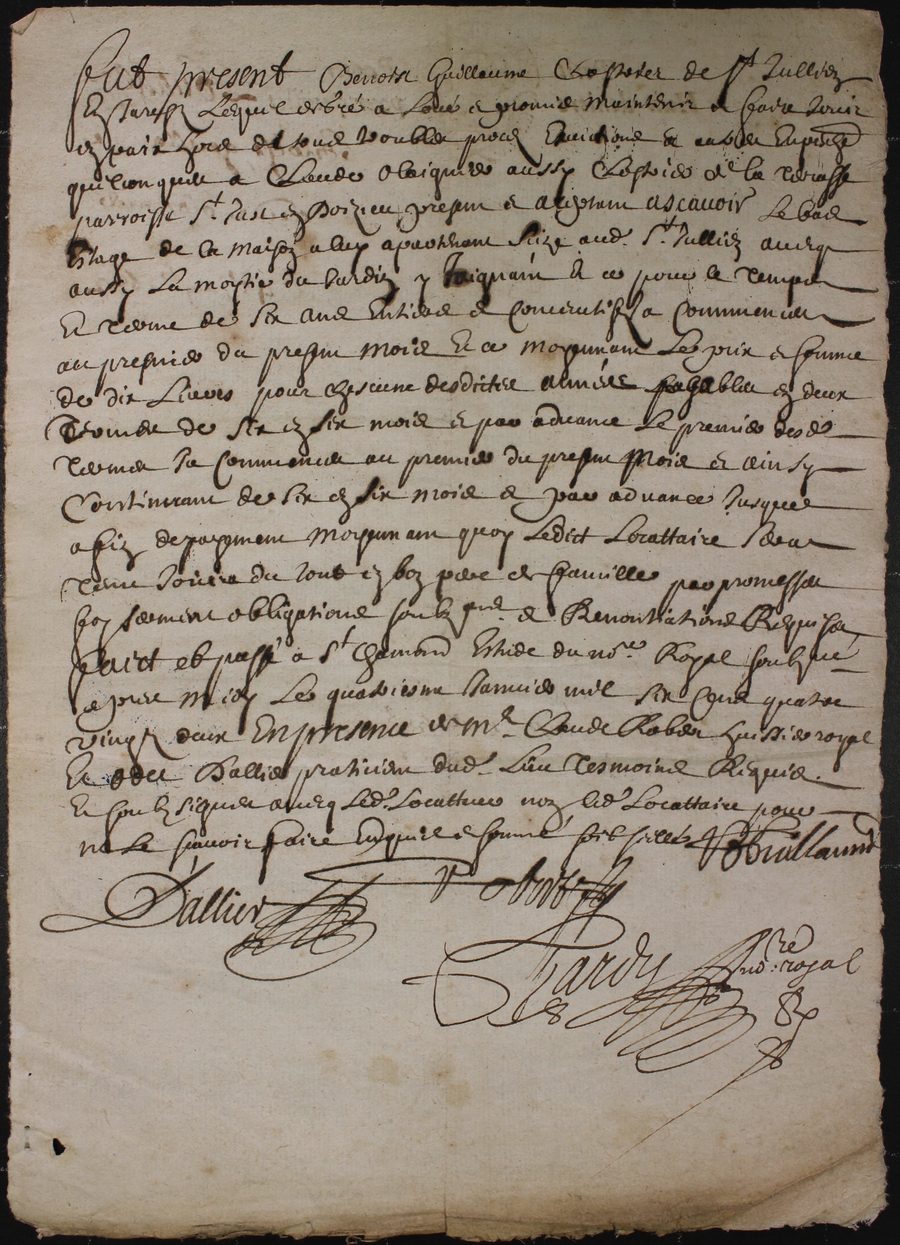 fut present Benoist Guillaume Clostrier de St Jullien
en Jarestz Lequel de gré a Loué et promis maintenir et faire Jouir
en paix hors de tous troubles proces Evictions et autres
quelconques a Claude aussy Clostrier de la Terasse
parroisse St Just en Doizieu present et acceptant ascavoir Le bas
Estage de la maison a luy apartenant size aud. St Jullien avecq
aussy La moytie du Jardin y Joignant Et ce pour le Temps
Et Terme de six ans Entiers et Consecutifz a Commencer
au premier du present mois Et ce moyennant Le prix et somme
de dix Livres pour chescune desdictes années payables en deux
Termes de six en six mois et par advance Le premier desd.
Termes Ja Commence au premier du present Mois et ainsy
Continuant de six en six mois et par advance Jusques
a fin de payement moyennant quoy Ledict Locattaire sera
Tenu Jouir du tout en bon pere de famille par promesses
foy serment obligations soubzmis.ns et Renontiations Requises
faict et passé a St Chamond Estude du no.re Royal soubzné
apres Midy Le quatriesme Janvier mil six Cens quatre
vingtz deux En presence de Mr. Claude Robert huissier royal
Et Dallier praticien dud. Lieu Tesmoins Requis.
Et soubz signes avecq Led. Locatteur non led. Locattaire pour
ne Le scavoir faire Enquis et sommé
BGuillaume
Dallier
Robert
Tardy no.re royal